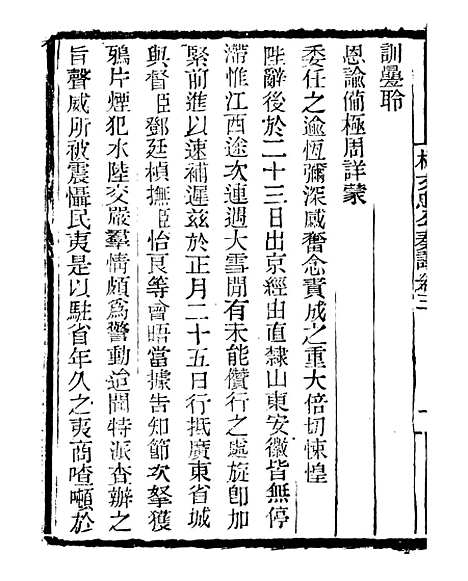 訓疊聆
恩諭備極周詳蒙
委任之逾恆彌深感奮念責成之重大倍切悚惶
陛辭後於二十三日出京經由直隸山東安徽皆無停
滯惟江西途次連遇大雪間有未能儹行之處旋卽加
緊前進以速補遲茲於正月二十五日行抵廣東省城
與督臣鄧廷楨撫臣怡良等會晤當據告知節次拏獲
鴉片煙犯水陸交嚴羣情頗爲警動迨聞特派查辦之
旨聲威所被震懾民夷是以駐省年久之夷商喳噸於